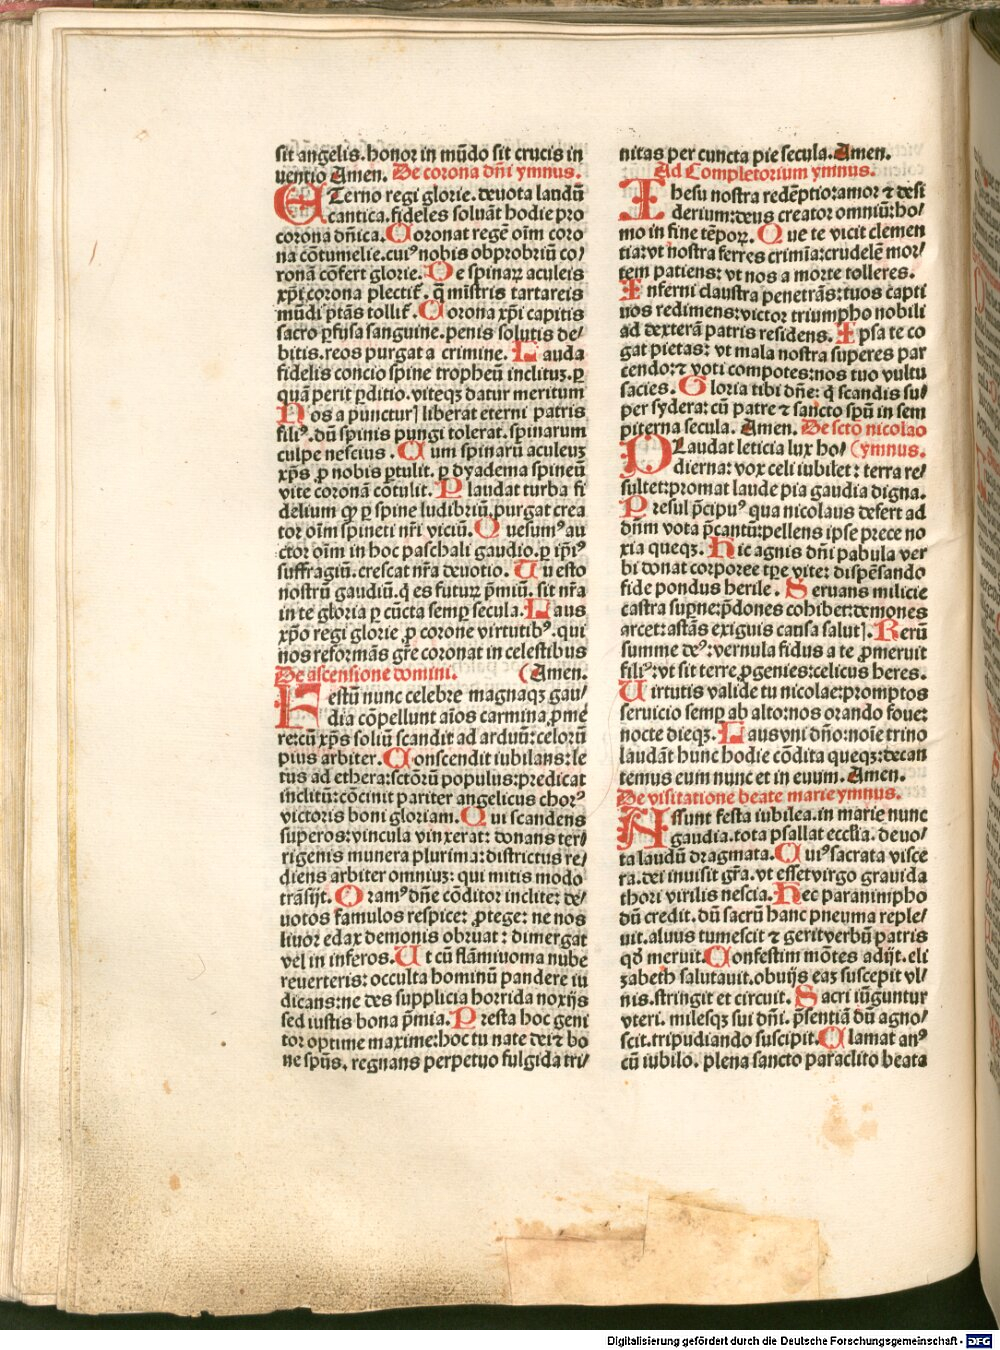 sit angelis. honor in mūdo sit crucis in
uentio Amen. De corona dn̄i ymnus.
ETerno regi glorie. deuota laudū
cantica. fideles soluāt hodie pro
corona dn̄ica. Coronat regē oīm coro
na cōtumelie. cuiꝰ nobis obprobriū co/
ronā cōfert glorie. De spinaꝝ aculeis
xp̄i corona plectit᷑. q̄ mīstris tartareis
mūdi ptās tollit᷑. Corona xp̄i capitis
sacro ꝑfusa sanguine. penis solutis de/
bitis. reos purgat a crimine. Lauda
fidelis concio spine tropheū inclituꝫ. ꝑ
quā perit ꝑditio. viteqꝫ datur meritum
Nos a puncturꝭ liberat eterni patris
filiꝰ. dū spinis pungi tolerat. spinarum
culpe nescius. Cum spinarū aculeuꝫ
xp̄s ꝓ nobis ꝑtulit. ꝑ dyadema spineū
vite coronā cōtulit. Plaudat turba fi
delium ꝙ ꝑ spine ludibriū. purgat crea
tor oīm spineti nr̄i viciū. Quesumꝰ au
ctor oīm in hoc paschali gaudio. ꝑ ip̄iꝰ
suffragiū. crescat nr̄a deuotio. Tu esto
nostrū gaudiū. q̇ es futurꝰ p̄miū. sit nr̄a
in te gloria ꝑ cūcta semꝑ secula. Laus
xp̄o regi glorie ꝓ corone virtutibꝰ. qui
nos reformās gr̄e coronat in celestibus
De ascensione domini. (Amen.
Festū nunc celebre magnaqꝫ gau/
dia cōpellunt aīos carmina ꝓme
re: cū xp̄s soliū scandit ad arduū: celorū
pius arbiter. Conscendit iubilans: le
tus ad ethera: sctōrū populus: predicat
inclitū: cōcinit pariter angelicus chorꝰ
victoris boni gloriam. Qui scandens
superos: vincula vinxerat: donans ter/
rigenis munera plurima: districtus re/
diens arbiter omniuꝫ: qui mitis modo
trāsijt. Oramꝰ dn̄e cōditor inclite: de/
uotos famulos respice: ꝓtege: ne nos
liuor edax demonis obruat: dimergat
vel in inferos. Ut cū flāmiuoma nube
reuerteris: occulta hominū pandere iu
dicans: ne des supplicia horrida noxijs
sed iustis bona p̄mia. Presta hoc geni
tor optime maxime: hoc tu nate dei ⁊ bo
ne sp̄us. regnans perpetuo fulgida tri/
nitas per cuncta pie secula. Amen.
Ad Completorium ymnus.
Ihesu nostra redēptio: amor ⁊ desi
derium: deus creator omniū: ho/
mo in fine tēpoꝝ. Que te vicit clemen
tia: vt nostra ferres crimīa: crudelē mor/
tem patiens: vt nos a morte tolleres.
Inferni claustra penetrās: tuos capti
uos redimens: victor triumpho nobili
ad dexterā patris residens. Ipsa te co
gat pietas: vt mala nostra superes par
cendo: ⁊ voti compotes: nos tuo vultu
sacies. Gloria tibi dn̄e: q̇ scandis su/
per sydera: cū patre ⁊ sancto sp̄u in sem
piterna secula. Amen. De sctō nicolao
PLaudat leticia lux ho/ (ymnus.
dierna: vox celi iubilet: terra re/
sultet: promat laude pia gaudia digna.
Presul p̄cipuꝰ qua nicolaus defert ad
dn̄m vota p̄cantū: pellens ipse prece no
xia queqꝫ. Hic agnis dn̄i pabula ver
bi donat corporee tꝑe vite: dispēsando
fide pondus herile. Seruans milicie
castra suꝑne: p̄dones cohibet: demones
arcet: astās exiguis causa salutꝭ. Rerū
summe deꝰ: vernula fidus a te ꝓmeruit
filiꝰ: vt sit terre ꝓgenies: celicus heres.
Uirtutis valide tu nicolae: promptos
seruicio semꝑ ab alto: nos orando foue:
nocte dieqꝫ. Laus vni dn̄o: noīe trino
laudāt hunc hodie cōdita queqꝫ: decan
temus eum nunc et in euum. Amen.
De visitatione beate marie ymnus.
Assunt festa iubilea. in marie nunc
gaudia. tota psallat eccl̄ia. deuo/
ta laudū dragmata. Cuiꝰ sacrata visce
ra. dei inuisit gr̄a. vt esset virgo grauida
thori virilis nescia. Hec paranimpho
dū credit. dū sacrū hanc pneuma reple/
uit. aluus tumescit ⁊ gerit verbū patris
qd̄ meruit. Confestim mōtes adijt. eli
zabeth salutauit. obuijs eaꝫ suscepit vl/
nis. stringit et circuit. Sacri iūguntur
vteri. milesqꝫ sui dn̄i. p̄sentiā dū agno/
scit. tripudiando suscipit. Clamat anꝰ
cū iubilo. plena sancto paraclito beata
Digitalisierung gefördert durch die Deutsche Forschungsgemeinschaft - DFG